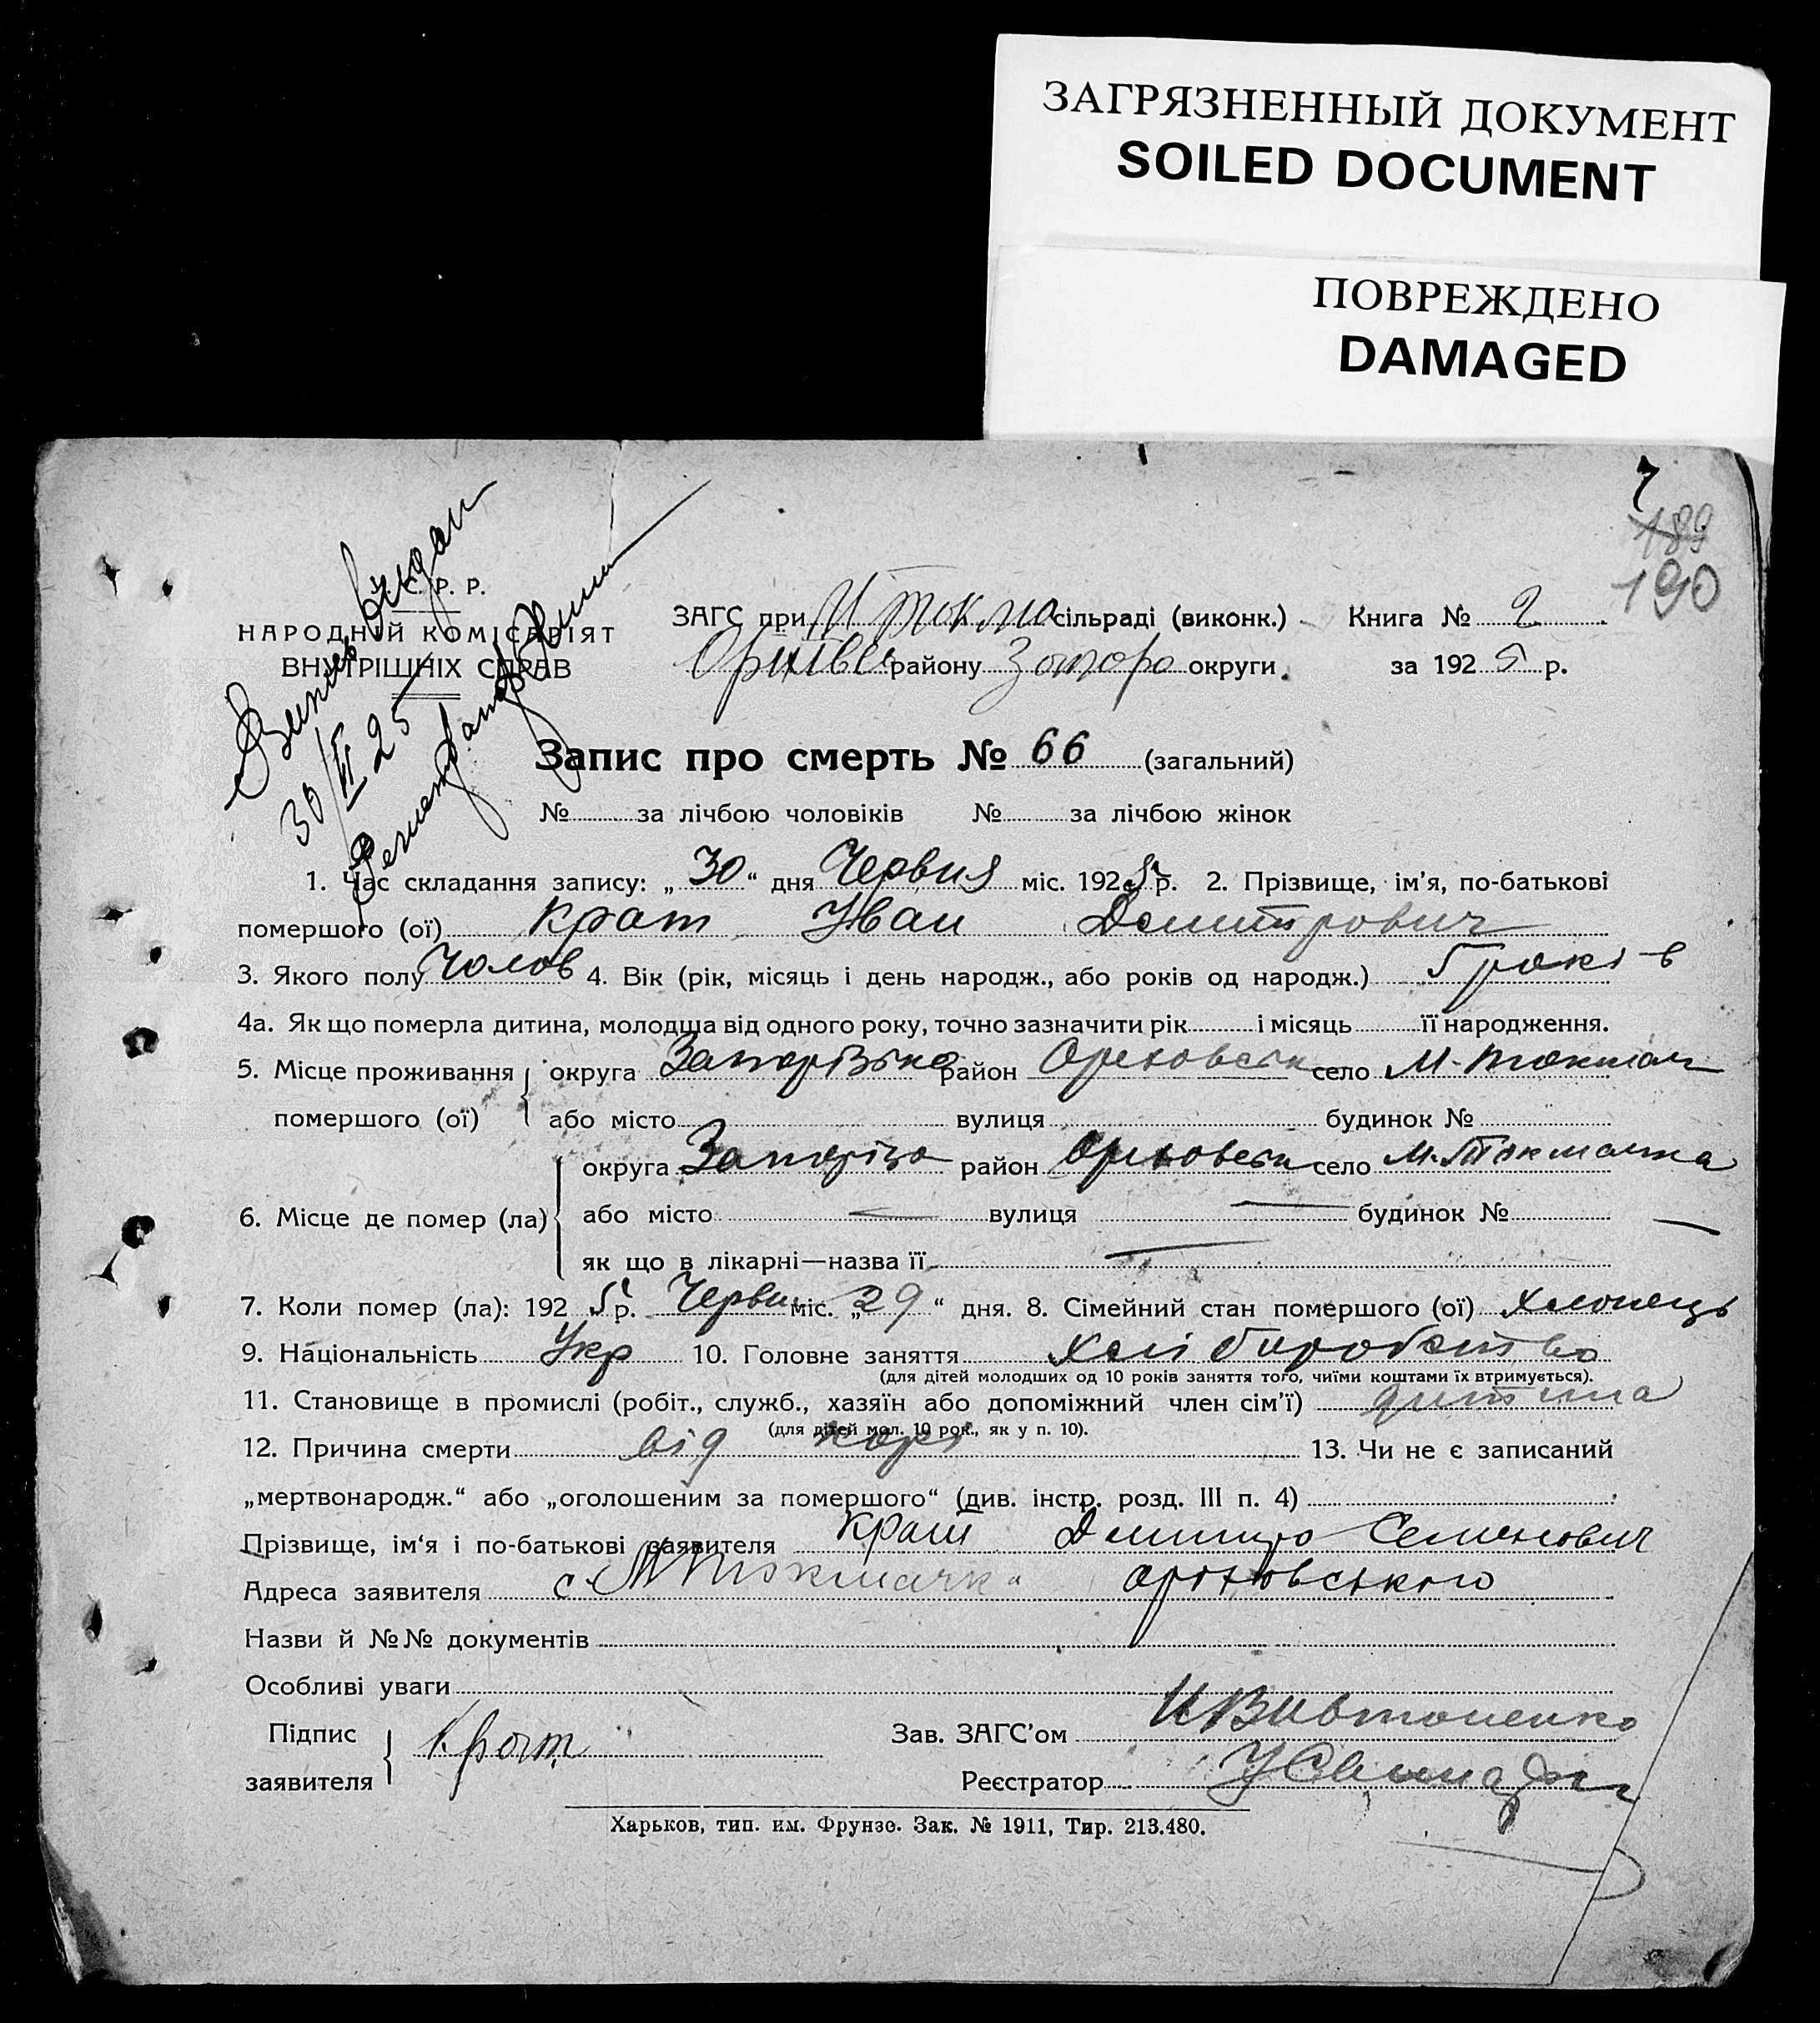 ЗАГРЯЗНЕННЫЙ ДОКУМЕНТ
SOILED DOCUMENT
ПОВРЕЖДЕНО
DAMAGED
7
189
190
С. Р. Р.
НАРОДНІЙ КОМІСАРІЯТ
ВНУТРІШНІХ СПРАВ
30/VI 25
ЗАГС при М Токма сільраді (виконк.) Книга № 2
Оріхівс району Запоро округи. за 1925 р.
Запис про смерть № 66 (загальний)
№ за лічбою чоловіків № за лічбою жінок
1. Час складання запису: „30“ дня Червня міс. 1925 р. 2. Прізвище, ім’я, по-батькові
помершого (ої) Крат Іван Демитрович
3. Якого полу Чолов 4. Вік (рік, місяць і день народж., або років од народж.) 5 років
4а. Як що померла дитина, молодша від одного року, точно зазначити рік і місяць її народження.
5. Місце проживання округа Запорізька район Ореховськ село М-Токмач
помершого (ої) або місто вулиця будинок №
округа Запоріза район Ореховськ село М-Токмачка
6. Місце де помер (ла) або місто — вулиця — будинок № —
як що в лікарні—назва її —
7. Коли помер (ла): 1925 р. Червн міс. „29“ дня. 8. Сімейний стан помершого (ої) хлопець
9. Національність Укр 10. Головне заняття хлібиробство
(для дітей молодших од 10 років заняття того, чиїми коштами їх втримується).
11. Становище в промислі (робіт., служб., хазяїн або допоміжний член сім’ї) дитина
(для дітей мол. 10 рок., як у п. 10).
12. Причина смерти від корі 13. Чи не є записаний
„мертвонародж.“ або „оголошеним за помершого“ (див. інстр. розд. III п. 4)
Прізвище, ім‘я і по-батькові заявителя Крат Дмитро Семенович
Адреса заявителя с. М Токмачка Оріховського
Назви й №№ документів
Особливі уваги
Підпис Крат Зав. ЗАГС’ом
заявителя Реєстратор
Харьков, тип. им. Фрунзе. Зак. № 1911, Тир. 213.480.